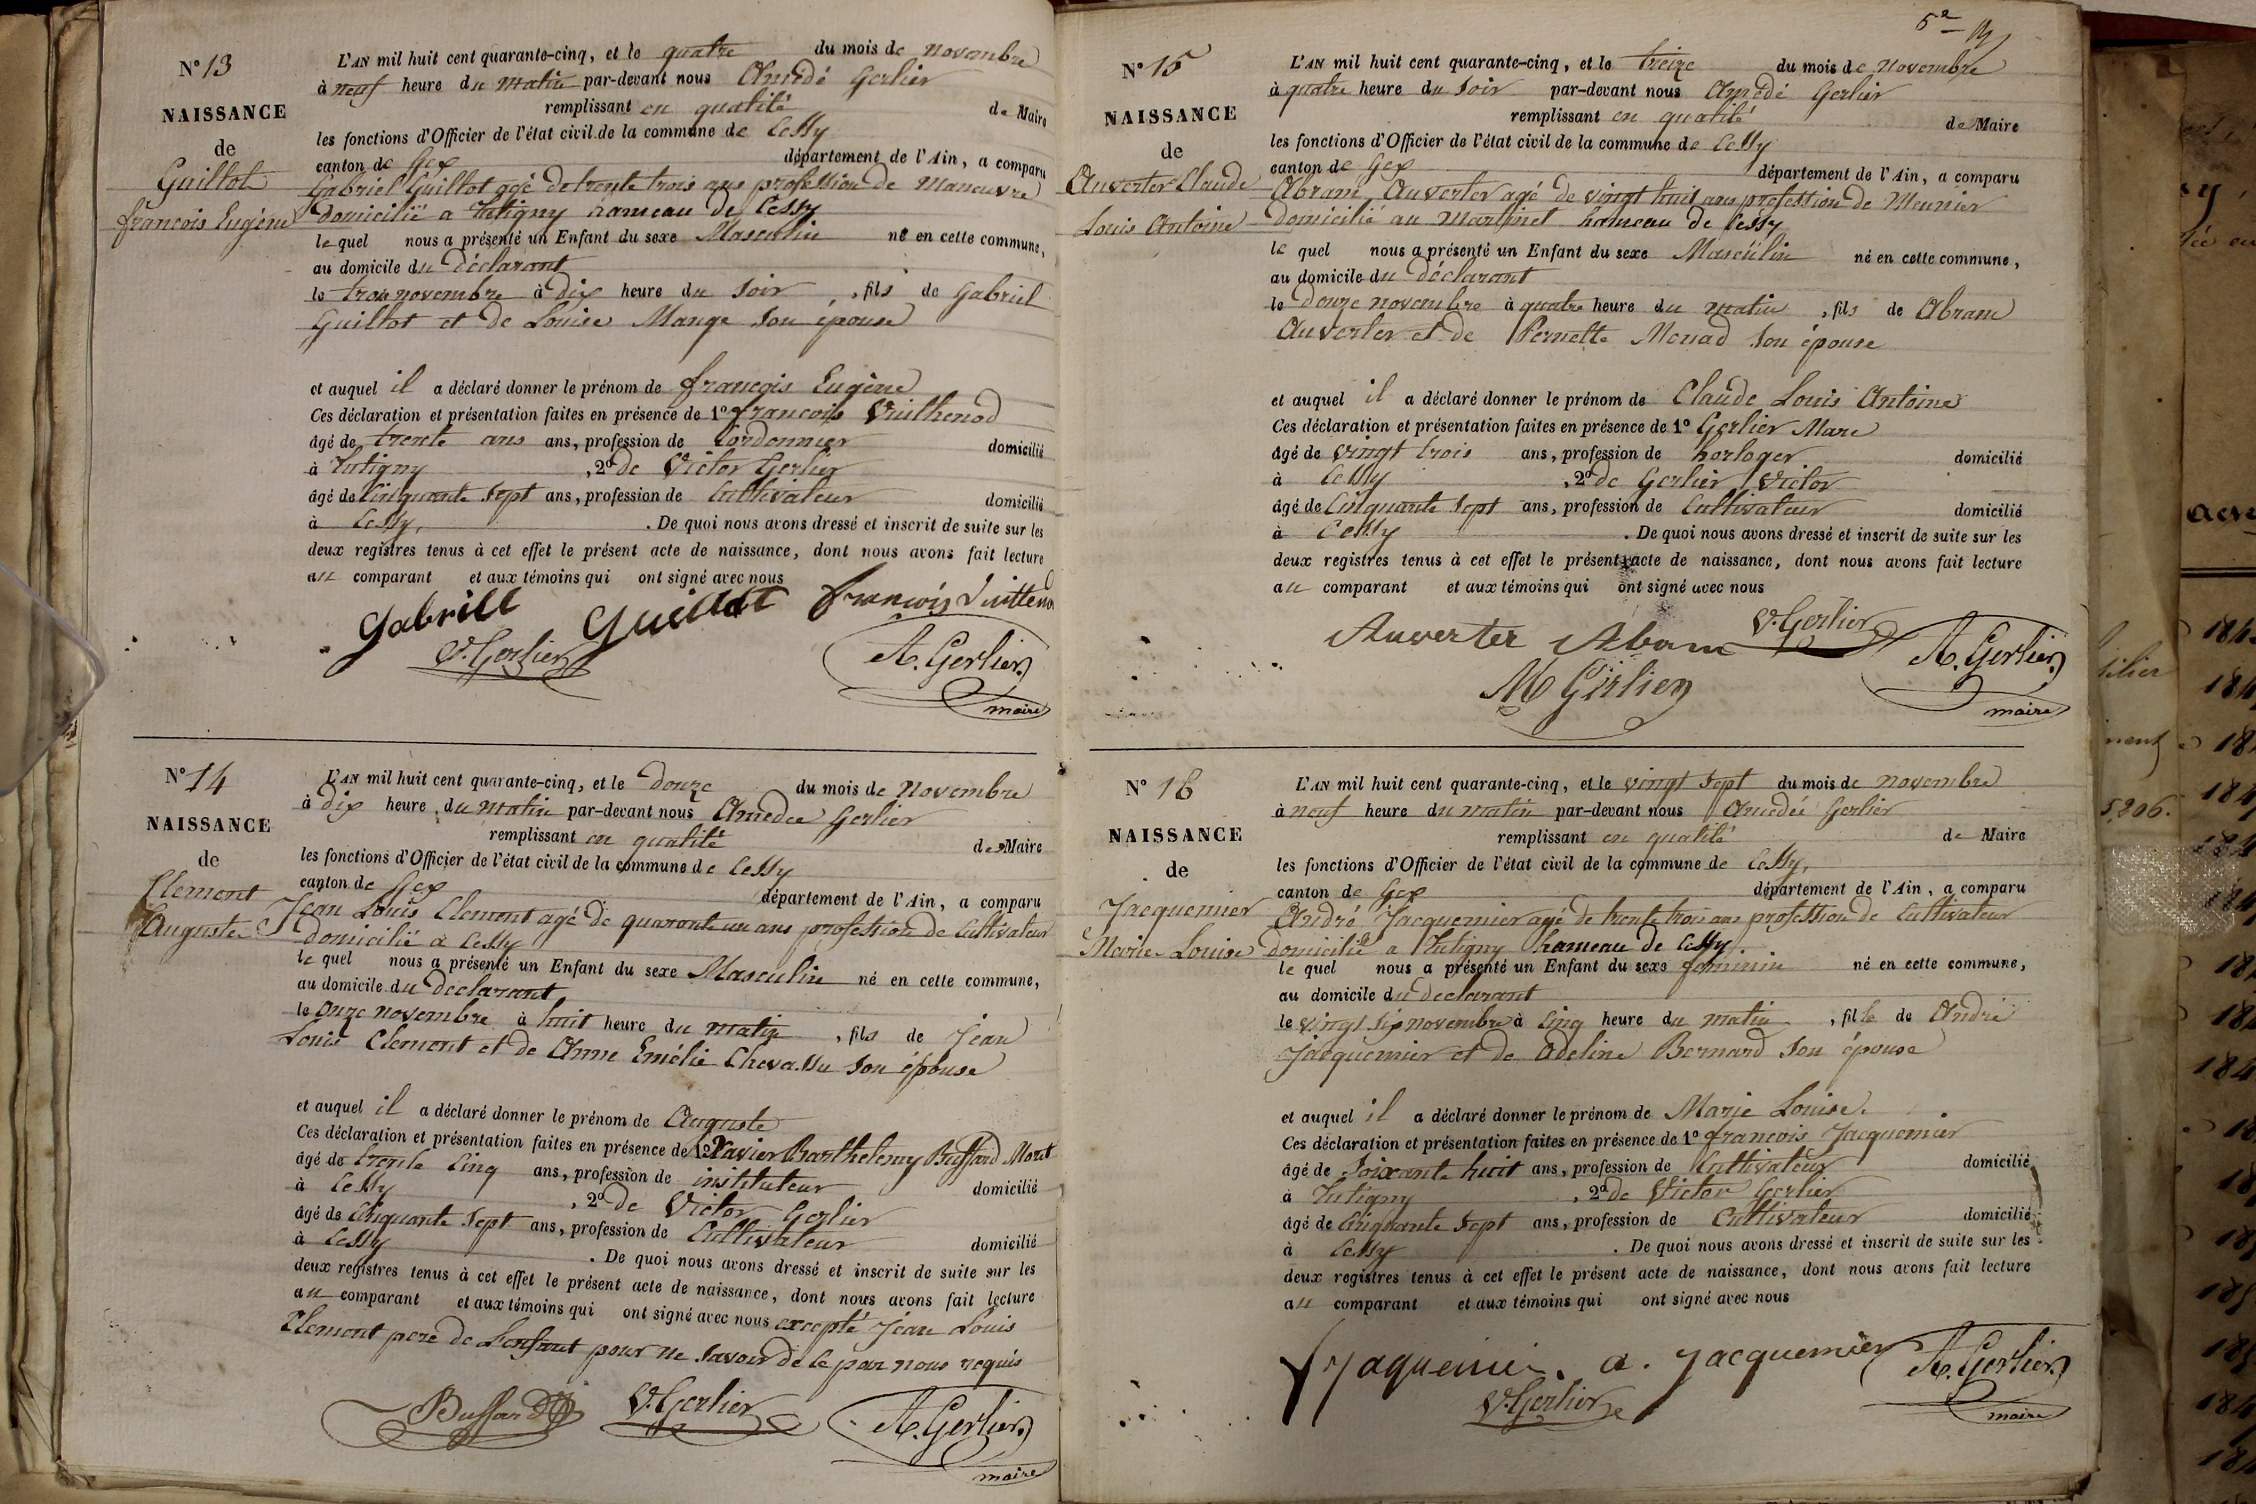 N° 13
NAISSANCE
de
Guillot
françois Eugène
L'AN mil huit cent quarante-cinq, et le quatre du mois de novembre
à neuf heure du matin par-devant nous Amédé Gerlier
remplissant en qualité de Maire
les fonctions d'Officier de l'état civil de la commune de Cessy
canton de Gex département de l'Ain, a comparu
Gabriel Guillot agé de trente trois ans profession de Maneuvre
domicilié a Tutigny hameau de Cessy
le quel nous a présenté un Enfant du sexe Masculin né en cette commune,
au domicile du déclarant
le trois novembre à dix heure du soir, fils de Gabriel
Guillot et de Louise Mange son épouse
et auquel il a déclaré donner le prénom de françois Eugène
Ces déclaration et présentation faites en présence de 1° françois Vuilhenod
âgé de trente ans ans, profession de Cordonnier domicilié
à Tutigny, 2d de Victor Gerlier
âgé de Cinquante sept ans, profession de Cultivateur domicilié
à Cessy. De quoi nous avons dressé et inscrit de suite sur les
deux registres tenus à cet effet le présent acte de naissance, dont nous avons fait lecture
au comparant et aux témoins qui ont signé avec nous
Gabrill Guillot françois
V. Gerlier A. Gerlier
maire
N° 14
NAISSANCE
de
Clement
Auguste
L'AN mil huit cent quarante-cinq, et le douze du mois de Novembre
à dix heure du matin par-devant nous Amedée Gerlier
remplissant en qualité de Maire
les fonctions d'Officier de l'état civil de la commune de Cessy
canton de Gex département de l'Ain, a comparu
Jean Louis Clement agé de quarante un ans profession de Cultivateur
domicilié a Cessy
le quel nous a présenté un Enfant du sexe Masculin né en cette commune,
au domicile du declarant
le onze novembre à huit heure du matin, fils de Jean
Louis Clement et de Anne Emélie Chevassu son épouse
et auquel il a déclaré donner le prénom de Auguste
Ces déclaration et présentation faites en présence de 1° Xavier Barthelemy Buffard Moret
âgé de trente cinq ans, profession de instituteur domicilié
à Cessy, 2d de Victor Gerlier
âgé de Cinquante sept ans, profession de Cultivateur domicilié
à Cessy. De quoi nous avons dressé et inscrit de suite sur les
deux registres tenus à cet effet le présent acte de naissance, dont nous avons fait lecture
au comparant et aux témoins qui ont signé avec nous excepté Jean Louis
Clement pere de L'enfant pour ne savoir de ce par nous requis
Buffard V. Gerlier A. Gerlier
maire
N° 15
NAISSANCE
de
Auverter Claude
Louis Antoine
L'AN mil huit cent quarante-cinq, et le treize du mois de Novembre
à quatre heure du soir par-devant nous Amédé Gerlier
remplissant en qualité de Maire
les fonctions d'Officier de l'état civil de la commune de Cessy
canton de Gex département de l'Ain, a comparu
Abram Auverter agé de vingt huit ans profession de Meunier
domicilié au Martinet hameau de Cessy
le quel nous a présenté un Enfant du sexe Masculin né en cette commune,
au domicile du déclarant
le douze novembre à quatre heure du matin, fils de Abram
Auverter et de Pernette Monad son épouse
et auquel il a déclaré donner le prénom de Claude Louis Antoine
Ces déclaration et présentation faites en présence de 1° Gerlier Marc
âgé de vingt trois ans, profession de horloger domicilié
à Cessy, 2d de Gerlier Victor
âgé de Cinquante sept ans, profession de Cultivateur domicilié
à Cessy. De quoi nous avons dressé et inscrit de suite sur les
deux registres tenus à cet effet le présent acte de naissance, dont nous avons fait lecture
au comparant et aux témoins qui ont signé avec nous
Auverter Abam V. Gerlier A. Gerlier
M Gerlier maire
N° 16
NAISSANCE
de
Jacquemier
Marie Louise
L'AN mil huit cent quarante-cinq, et le vingt sept du mois de novembre
à neuf heure du matin par-devant nous Amedée Gerlier
remplissant en qualité de Maire
les fonctions d'Officier de l'état civil de la commune de Cessy,
canton de Gex département de l'Ain, a comparu
André Jacquemier agé de trente trois ans profession de Cultivateur
domicilié a Tutigny hameau de Cessy.
le quel nous a présenté un Enfant du sexe feminin né en cette commune,
au domicile du declarant
le vingt six novembre à cinq heure du matin, fille de André
Jacquemier et de Adeline Bernard son épouse
et auquel il a déclaré donner le prénom de Marie Louise.
Ces déclaration et présentation faites en présence de 1° françois Jacquemier
âgé de soixante huit ans, profession de Cultivateur domicilié
à Tutigny, 2d de Victor Gerlier
âgé de Cinquante sept ans, profession de Cultivateur domicilié
à Cessy. De quoi nous avons dressé et inscrit de suite sur les
deux registres tenus à cet effet le présent acte de naissance, dont nous avons fait lecture
au comparant et aux témoins qui ont signé avec nous
a. Jacquemier A. Gerlier
V. Gerlier maire